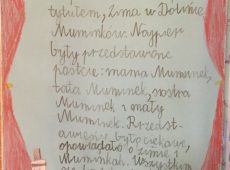 tytułem, Zima w Dolinie
Muminków. Najpierw
były przedstawione
postcie: mama Muminek,
tata Muminek, siostra
Muminek i mały
Muminek. Przedst-
awienie było ciekawe,
opowiadało o zimie i
Muminkah. Wszystkim